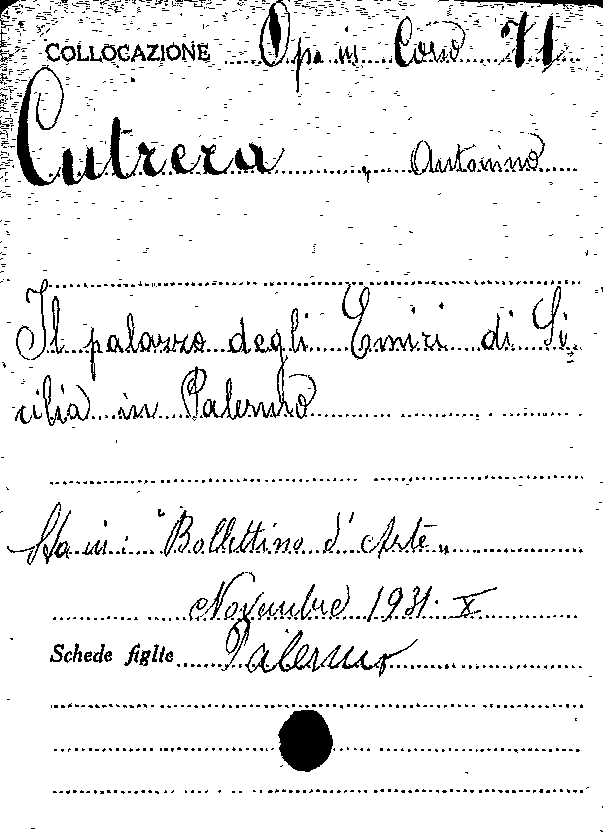 COLLOCAZIONE Op. in Cons 71
Cutrera, Antonino
Il palazzo degli Emiri di Si-
cilia in Palermo
Sta in: "Bollettino d'Arte"
Novembre 1931. X
Schede figlie Palermo